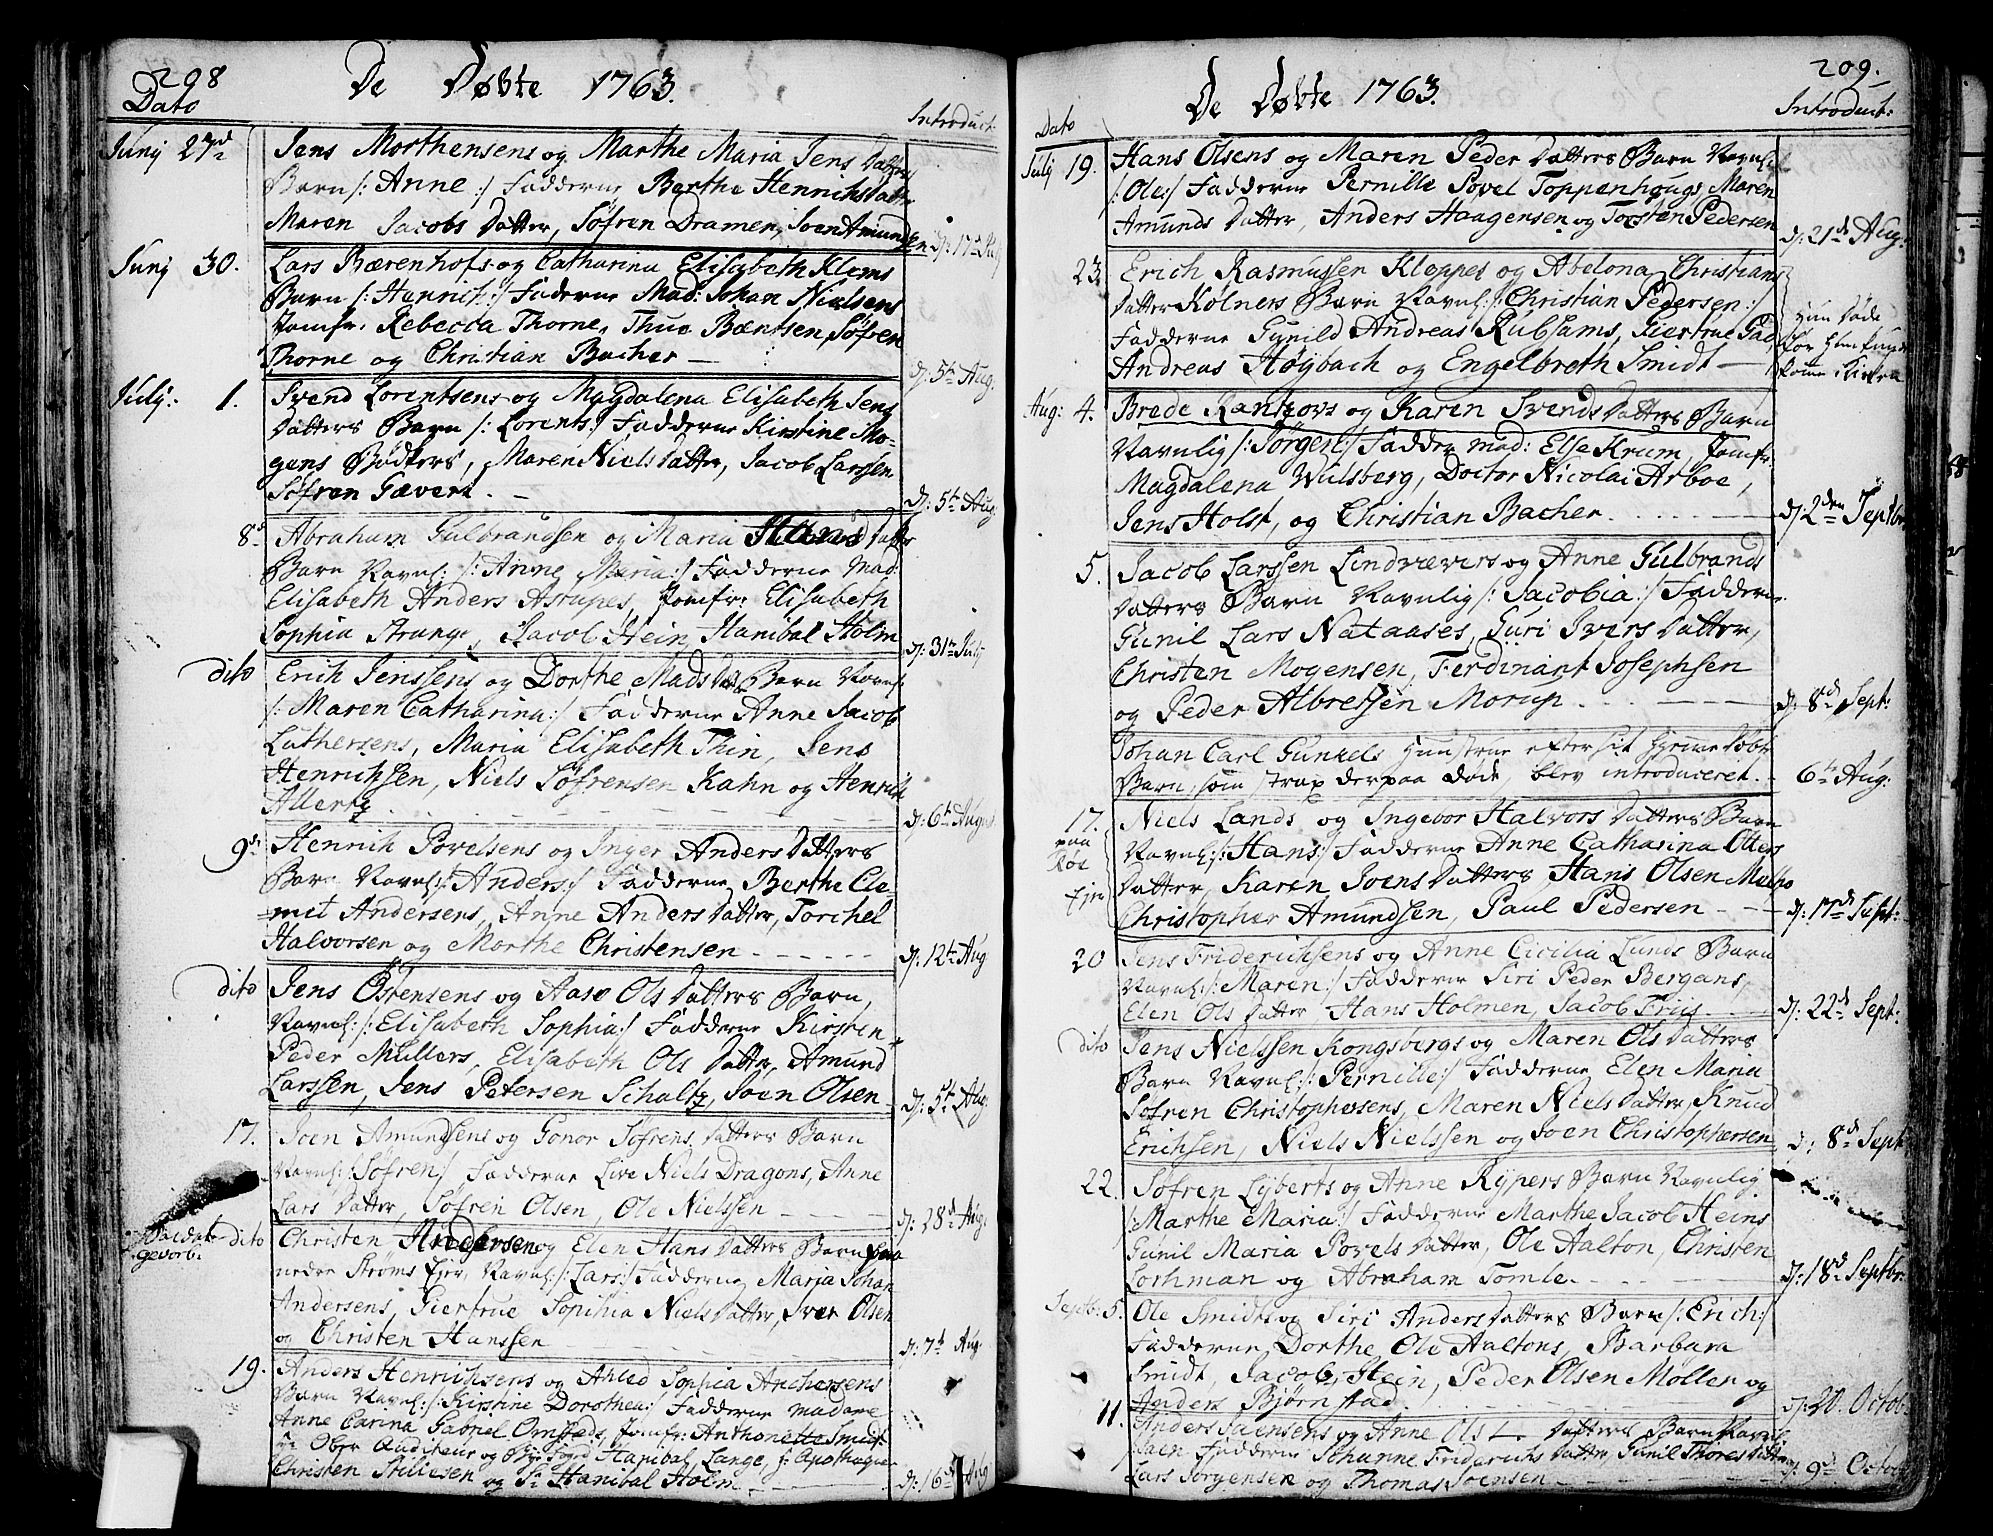 208
De Døbte 1763.
Dato
Introduct:
Junij 27d
Jens Morthensens og Marthe Maria Jens Datters
Barn /: Anne :/ Fadderne Berthe Henrichsdatter
Maren Jacobs Datter, Søfren Dramen, Joen Amundsen
d: 17d July
Junj 30.
Lars Bærenhofs og Catharina Elisabeth Klems
Barn /: Henrich :/ Fadderne Mad: Johan Nielsens
Jomfr. Rebecca Thorne, Thue Bæntsen, Søfren
Thorne og Christian Bacher —
d: 5t Aug:
Julij: 1.
Svend Lorentsens og Magdalena Elisabeth Jens
Datters Barn /: Lorents :/ Fadderne Kirstine Mo-
gens Bødkers, Maren Niels Datter, Jacob Larssen
Søfren Gævert. —
d: 5t Aug:
8d
Abraham Gulbrandsen og Maria Hans Datters
Barn Navnl: /: Anne Maria :/ Fadderne Mad:
Elisabeth Anders Astupes, Jomfr: Elisabeth
Sophia Strange, Jacob Hein, Hanibal Holm
d: 31te July
dito
Erich Jenssens og Dorthe Mads Dat Barn Navnl:
/: Maren Catharina :/ Fadderne Anne Jacob
Luthersens, Maria Elisabeth Thin, Jens
Henrichsen, Niels Søfrensen Kahn og Henrich
Allertz
d: 6t August
9d
Henrich Povelsens og Inger Anders Datters
Barn Navnl: /: Anders :/ Fadderne Berthe Cle-
met Andersens, Anne Anders Datter, Torchel
Halvorsen og Morthe Christensen
d: 12te Aug
dito
Jens Östensens og Aase Ols Datters Barn,
Navnl: /: Elisabeth Sophia :/ Fadderne Kirsten
Peder Müllers, Elisabeth Ols Datter, Amund
Larssen, Jens Petersen Schultz, Joen Olsen
d: 5t Aug:
17.
Joen Amundsens og Gonor Søfrens Datters Barn
Navnl: /: Søfren :/ Fadderne Live Niels Dragons, Anne
Lars Datter, Søfren Olsen, Ole Nielssen
d: 28d Aug:
Soldat
gevorb:
dito
Christen Andersen og Elen Hans Datters Barn paa
nedre Strøms Ejer, Navnl: /: Lars :/ Fadderne Maria Johan
Andersens, Giertrue Sophia Niels Datter, Iver Olsen
og Christen Hanssen
d: 7t Aug:
19.
Anders Henrichsens og Ahled Sophia Anchersens
Barn Navnl: /: Kirstine Dorothea :/ Fadderne Madame
Anne Carina Gabriel Ornsteds, Jomfr: Anthonette Smidt
Ober Auditeur og Bye Foged Hanibal Lange, Apotheqver
Christen Stillesen og Sr Hanibal Holm
d: 16d Aug
209.
De Døbte 1763.
Dato
Introduct:
Julij 19.
Hans Olsens og Maren Peder Datters Barn Navnl:
/: Ole :/ Fadderne Pernille Povel Toppenhougs, Maren
Amunds Datter, Anders Haagensen og Torsten Pedersen
d: 21d Aug:
23.
Erich Rasmussen Kloppes og Abelona Christians
Datter Kølners Barn Navnl: /: Christian Pedersen :/
Fadderne Gunild Andreas Rübsams, Giertrue
Andreas Høybach og Engelbreth Smidt —
Hun døde
før Hun kunde
komme i Kirken
Aug: 4.
Brede Rantzovs og Karen Svends Datters Barn
Navnlig /: Jørgen :/ Fadder Mad: Else Krum, Jomfr.
Magdalena Wulsberg, Doctor Nicolai Arboe,
Jens Holst, og Christian Bacher.
d: 2den Septbr
5.
Jacob Larssen Lindværers og Anne Gulbrands
Datters Barn Navnlig /: Jacobia :/ Fadderne
Gunil Lars Nataases, Guri Ivers Datter,
Christen Mogensen, Ferdinant Josephsen
og Peder Albretsen Morup.
d: 8d Sept:
Johan Carl Gunkels Hustrue efter sit hjemme døbte
Barn, som strax derpaa døde, blev introduceret.
6te Aug:
17.
paa
Røe
Ejer
Niels Lands og Ingebor Halvors Datters Barn
Navnl: /: Hans :/ Fadderne Anne Catharina Otters
Datter, Karen Joens Datters, Hans Olsen Moeho
Christopher Amundsen, Paul Pedersen
d: 17d Sept:
20
Jens Friderichsens og Anne Cicilia Lunds Barn
Navnl: /: Maren :/ Fadderne Siri Peder Bergans,
Elen Ols Datter, Hans Holmen, Jacob Friis.
d: 22d Sept:
dito
Jens Nielssen Kongsbergs og Maren Ols Datters
Barn Navnl: /: Pernille :/ Fadderne Elen Maria
Søfren Christophersens, Maren Niels Datter, Knud
Erichsen, Niels Nielssen og Joen Christophersen
d: 8d Sept
22.
Søfren Lyberts og Anne Rypers Barn Navnlig
/: Marthe Maria :/ Fadderne Marthe Jacob Heins
Gunil Maria Povels Datter, Ole Aalton, Christen
Lochman og Abraham Tomle.
d: 18d Septbr:
Septb: 5.
Ole Smids og Siri Anders Datters Barn /: Erich :/
Fadderne Dorthe Ole Aaltons, Barbara
Smidt, Jacob Hein, Peder Olsen Møller og
Anders Bjørnstad.
d: 20. Octob.
11.
Anders Joensens og Anne Ols Datters Barn Navnl:
/: Joen Fadderne Johanne Friderichs Datter, Gunil Thores Datter
Lars Jørgensen og Thomas Joensen
d: 9d Octob